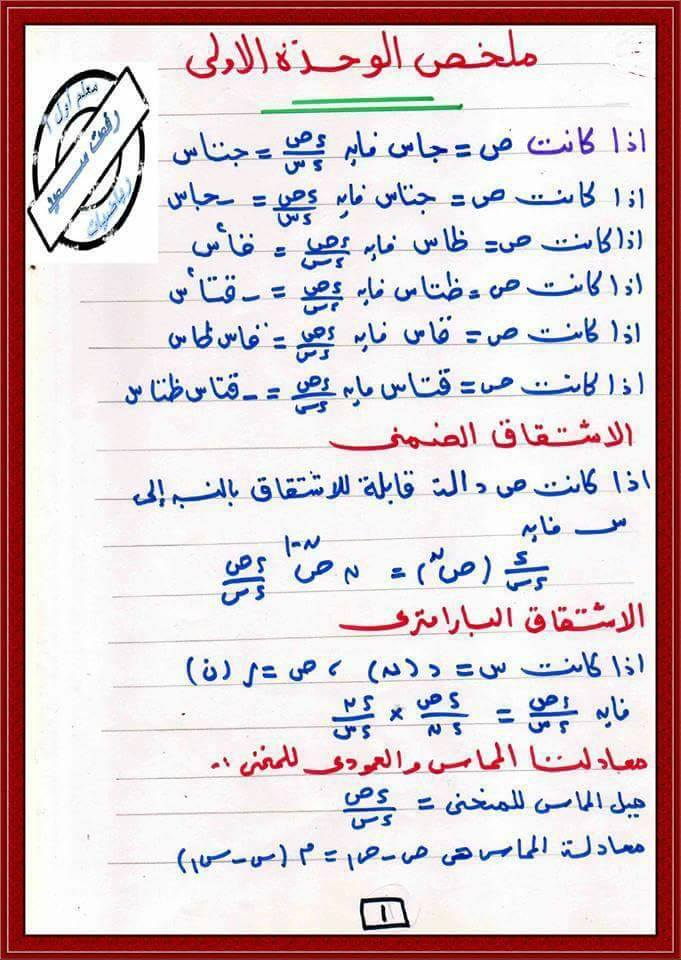 ملخص الوحدة الاولى
معلم اول أ
رفعت سعيد
رياضيات
اذا كانت ص = جاس فإنه ءص/ءس = جتاس
اذا كانت ص = جتاس فإنه ءص/ءس = -جاس
اذا كانت ص = ظاس فإنه ءص/ءس = قا²س
اذا كانت ص = ظتاس فإنه ءص/ءس = -قتا²س
اذا كانت ص = قاس فإنه ءص/ءس = قاس ظاس
اذا كانت ص = قتاس فإنه ءص/ءس = -قتاس ظتاس
الاشتقاق الضمنى
اذا كانت ص دالة قابلة للاشتقاق بالنسبه إلى
س فإنه
ء/ءس (ص^ن) = ن ص^(ن-١) ءص/ءس
الاشتقاق البارامترى
اذا كانت س = د(ن) ، ص = ر(ن)
فإنه ءص/ءس = ءص/ءن × ءن/ءس
معادلتا المماس والعمودى للمنحنى :-
ميل المماس للمنحنى = ءص/ءس
معادلة المماس هى ص - ص١ = م (س - س١)
١